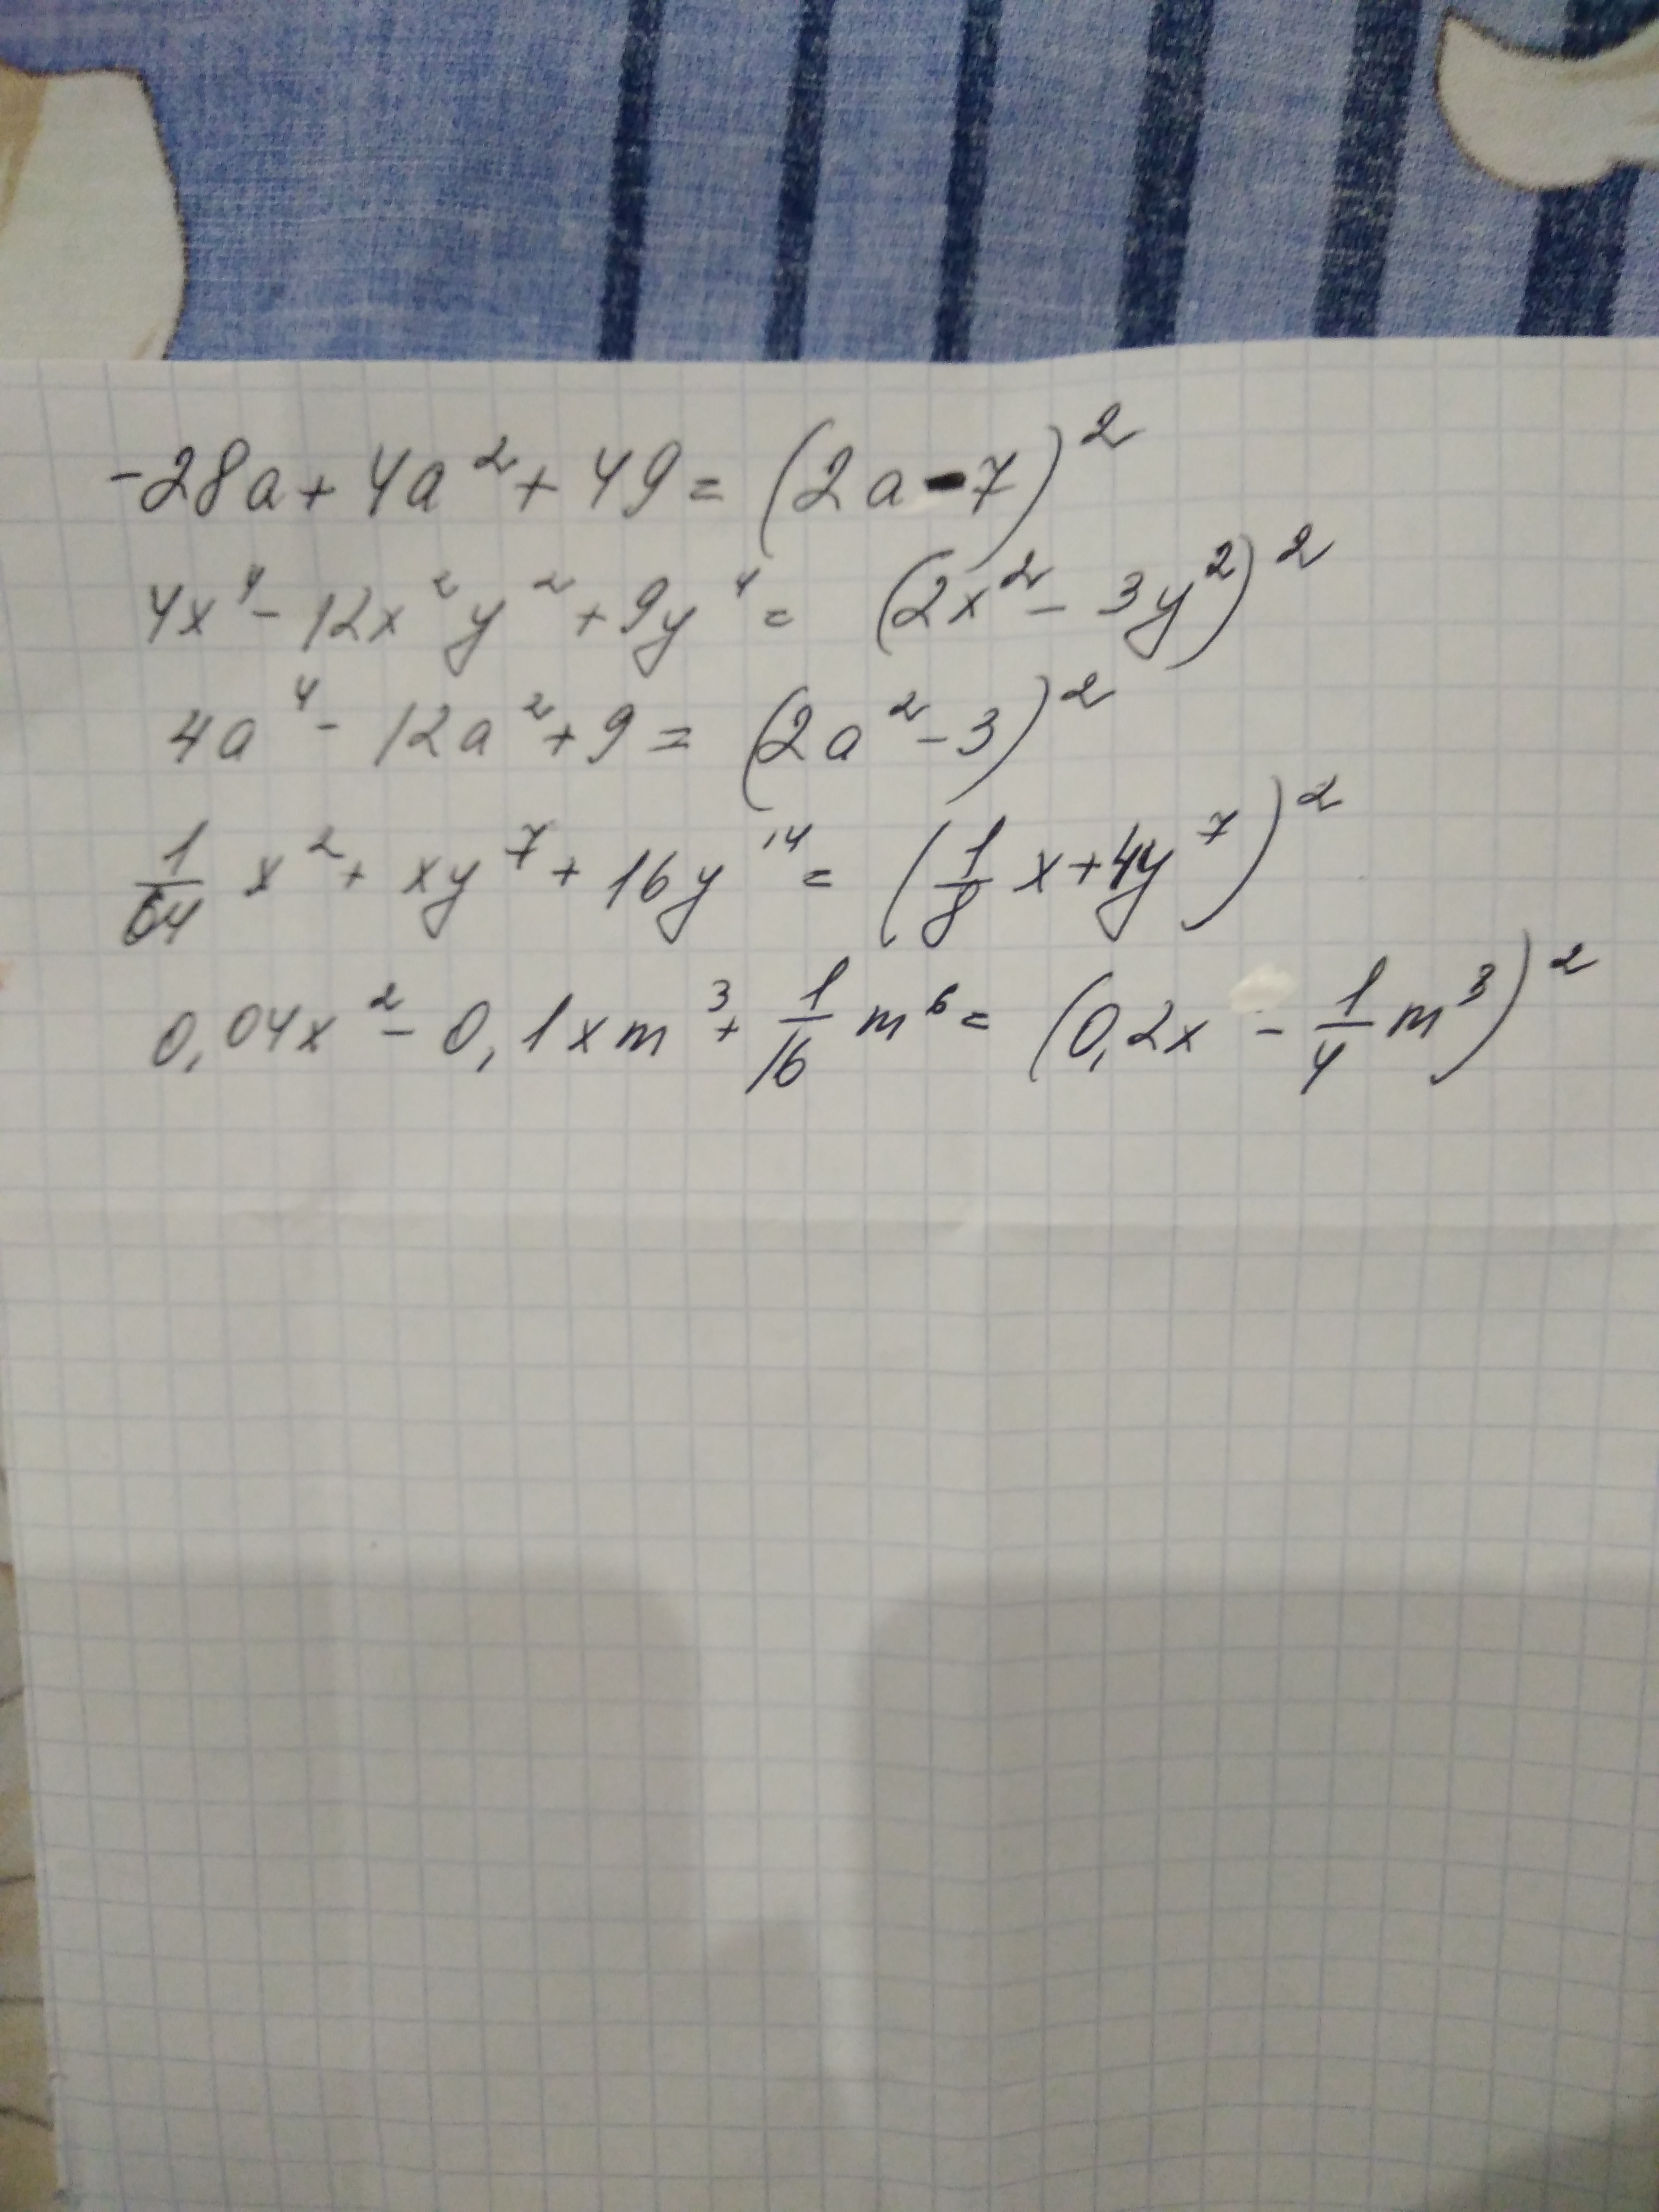 -28a + 4a² + 49 = (2a - 7)²
4x⁴ - 12x²y² + 9y⁴ = (2x² - 3y²)²
4a⁴ - 12a² + 9 = (2a² - 3)²
1/64 x² + xy⁷ + 16y¹⁴ = (1/8 x + 4y⁷)²
0,04x² - 0,1xm³ + 1/16 m⁶ = (0,2x - 1/4 m³)²